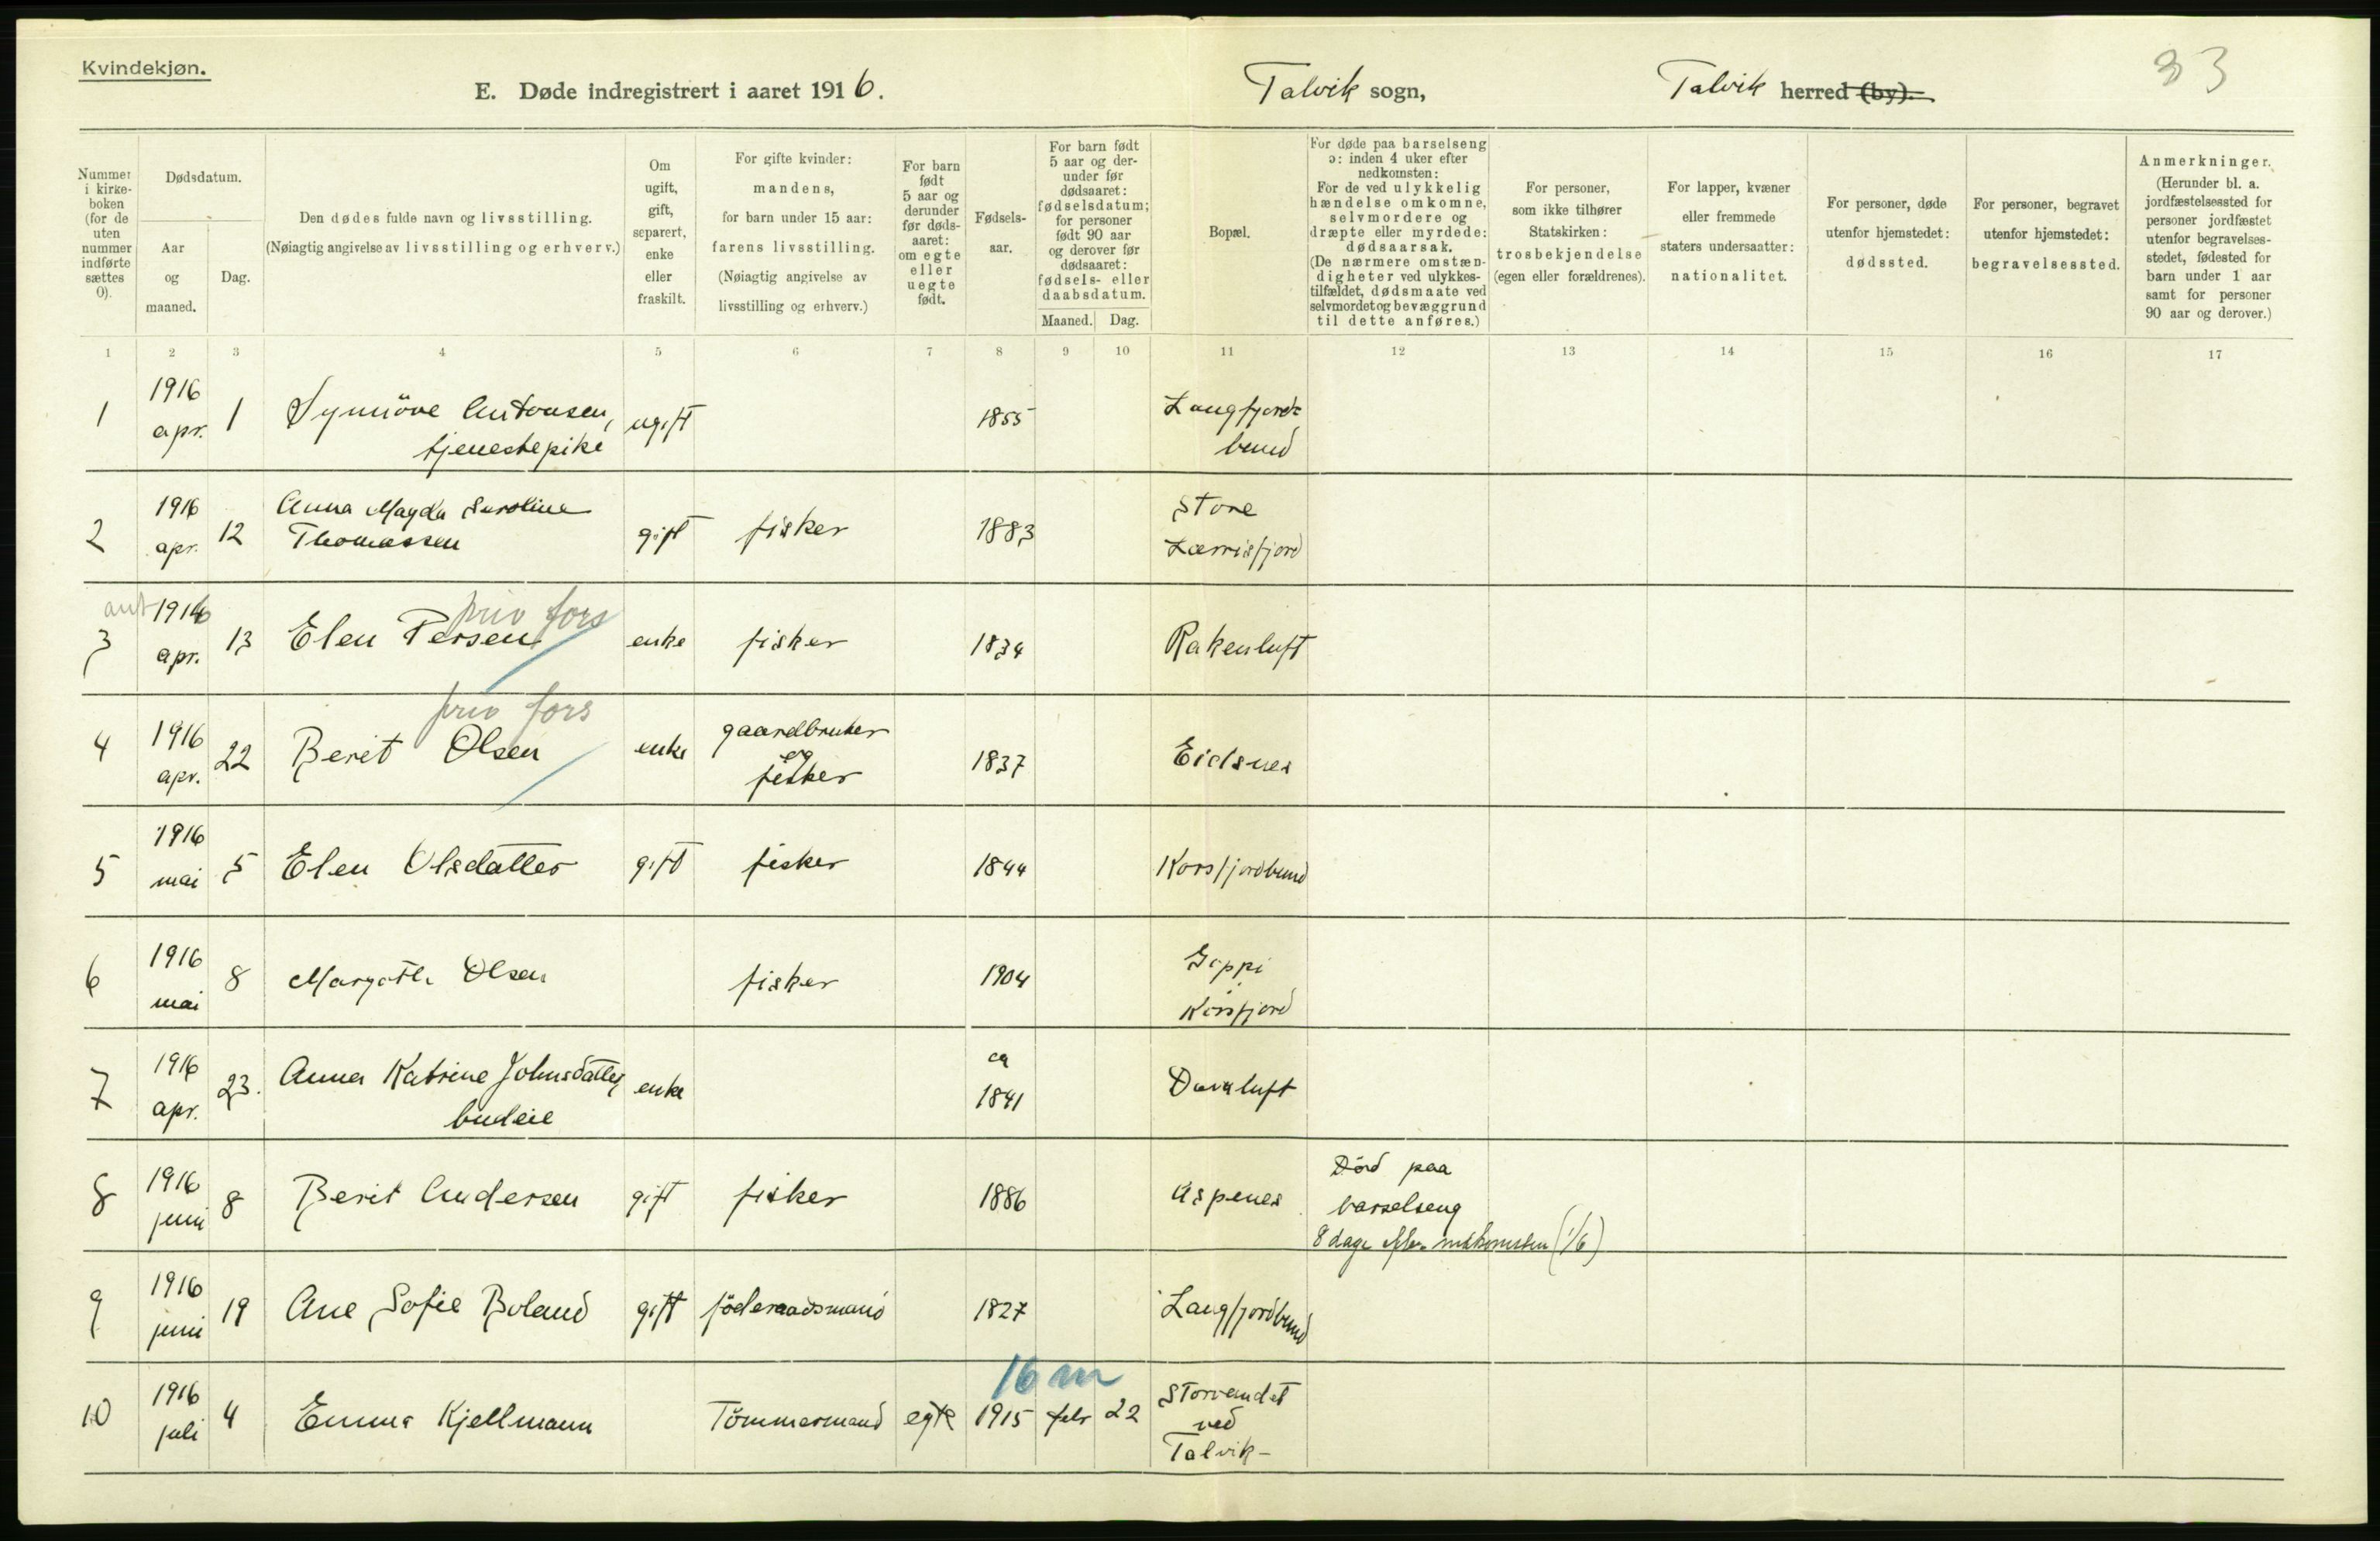 Kvindekjøn.
E. Døde indregistrert i aaret 1916.
Talvik sogn,
Talvik herred (by).
33
Nummer i kirkeboken (for de uten nummer indførte sættes 0).
Dødsdatum.
Aar og maaned.
Dag.
Den dødes fulde navn og livsstilling.
(Nøiagtig angivelse av livsstilling og erhverv.)
Om ugift, gift, separert, enke eller fraskilt.
For gifte kvinder: mandens, for barn under 15 aar: farens livsstilling. (Nøiagtig angivelse av livsstilling og erhverv.)
For barn født 5 aar og derunder før dødsaaret: om egte eller uegte født.
Fødselsaar.
For barn født 5 aar og derunder før dødsaaret: fødselsdatum; for personer født 90 aar og derover før dødsaaret: fødsels- eller daabsdatum.
Maaned. Dag.
Bopæl.
For døde paa barselseng ɔ: inden 4 uker efter nedkomsten: For de ved ulykkelig hændelse omkomne, selvmordere og dræpte eller myrdede: dødsaarsak. (De nærmere omstændigheter ved ulykkestilfældet, dødsmaate ved selvmordet og bevæggrund til dette anføres.)
For personer, som ikke tilhører Statskirken: trosbekjendelse (egen eller forældrenes).
For lapper, kvæner eller fremmede staters undersaatter: nationalitet.
For personer, døde utenfor hjemstedet: dødssted.
For personer, begravet utenfor hjemstedet: begravelsessted.
Anmerkninger. (Herunder bl. a. jordfæstelsessted for personer jordfæstet utenfor begravelsesstedet, fødested for barn under 1 aar samt for personer 90 aar og derover.)
1 2 3 4 5 6 7 8 9 10 11 12 13 14 15 16 17
1 1916 apr. 1 Synnöve Antonsen, tjenestepike ugift 1855 Langfjordbund
2 1916 apr. 12 Anna Magda Seroline Thomassen gift fisker 1883 Store Lærrisfjord
ant
priv fors
3 1916 apr. 13 Elen Persen enke fisker 1834 Rakenluft
priv fors
4 1916 apr. 22 Berit Olsen enke gaardbruker og fisker 1837 Eidsnes
5 1916 mai 5 Elen Olsdatter gift fisker 1844 Korsfjordbund
6 1916 mai 8 Margoth Olsen fisker 1904 Korsfjord
7 1916 apr. 23. Anna Katrine Johnsdatter, budeie enke ca 1841
8 1916 juni 8 Berit Andersen gift fisker 1886 Aspenes Död paa barselseng 8 dage efter nedkomsten (1/6)
9 1916 juni 19 Ane Sofie Boland gift föderaadsmand 1827 Langfjordbund
16 m
10 1916 juli 4 Emma Kjellmann Tömmermand egte 1915 febr 22 Storvandet ved Talvik-